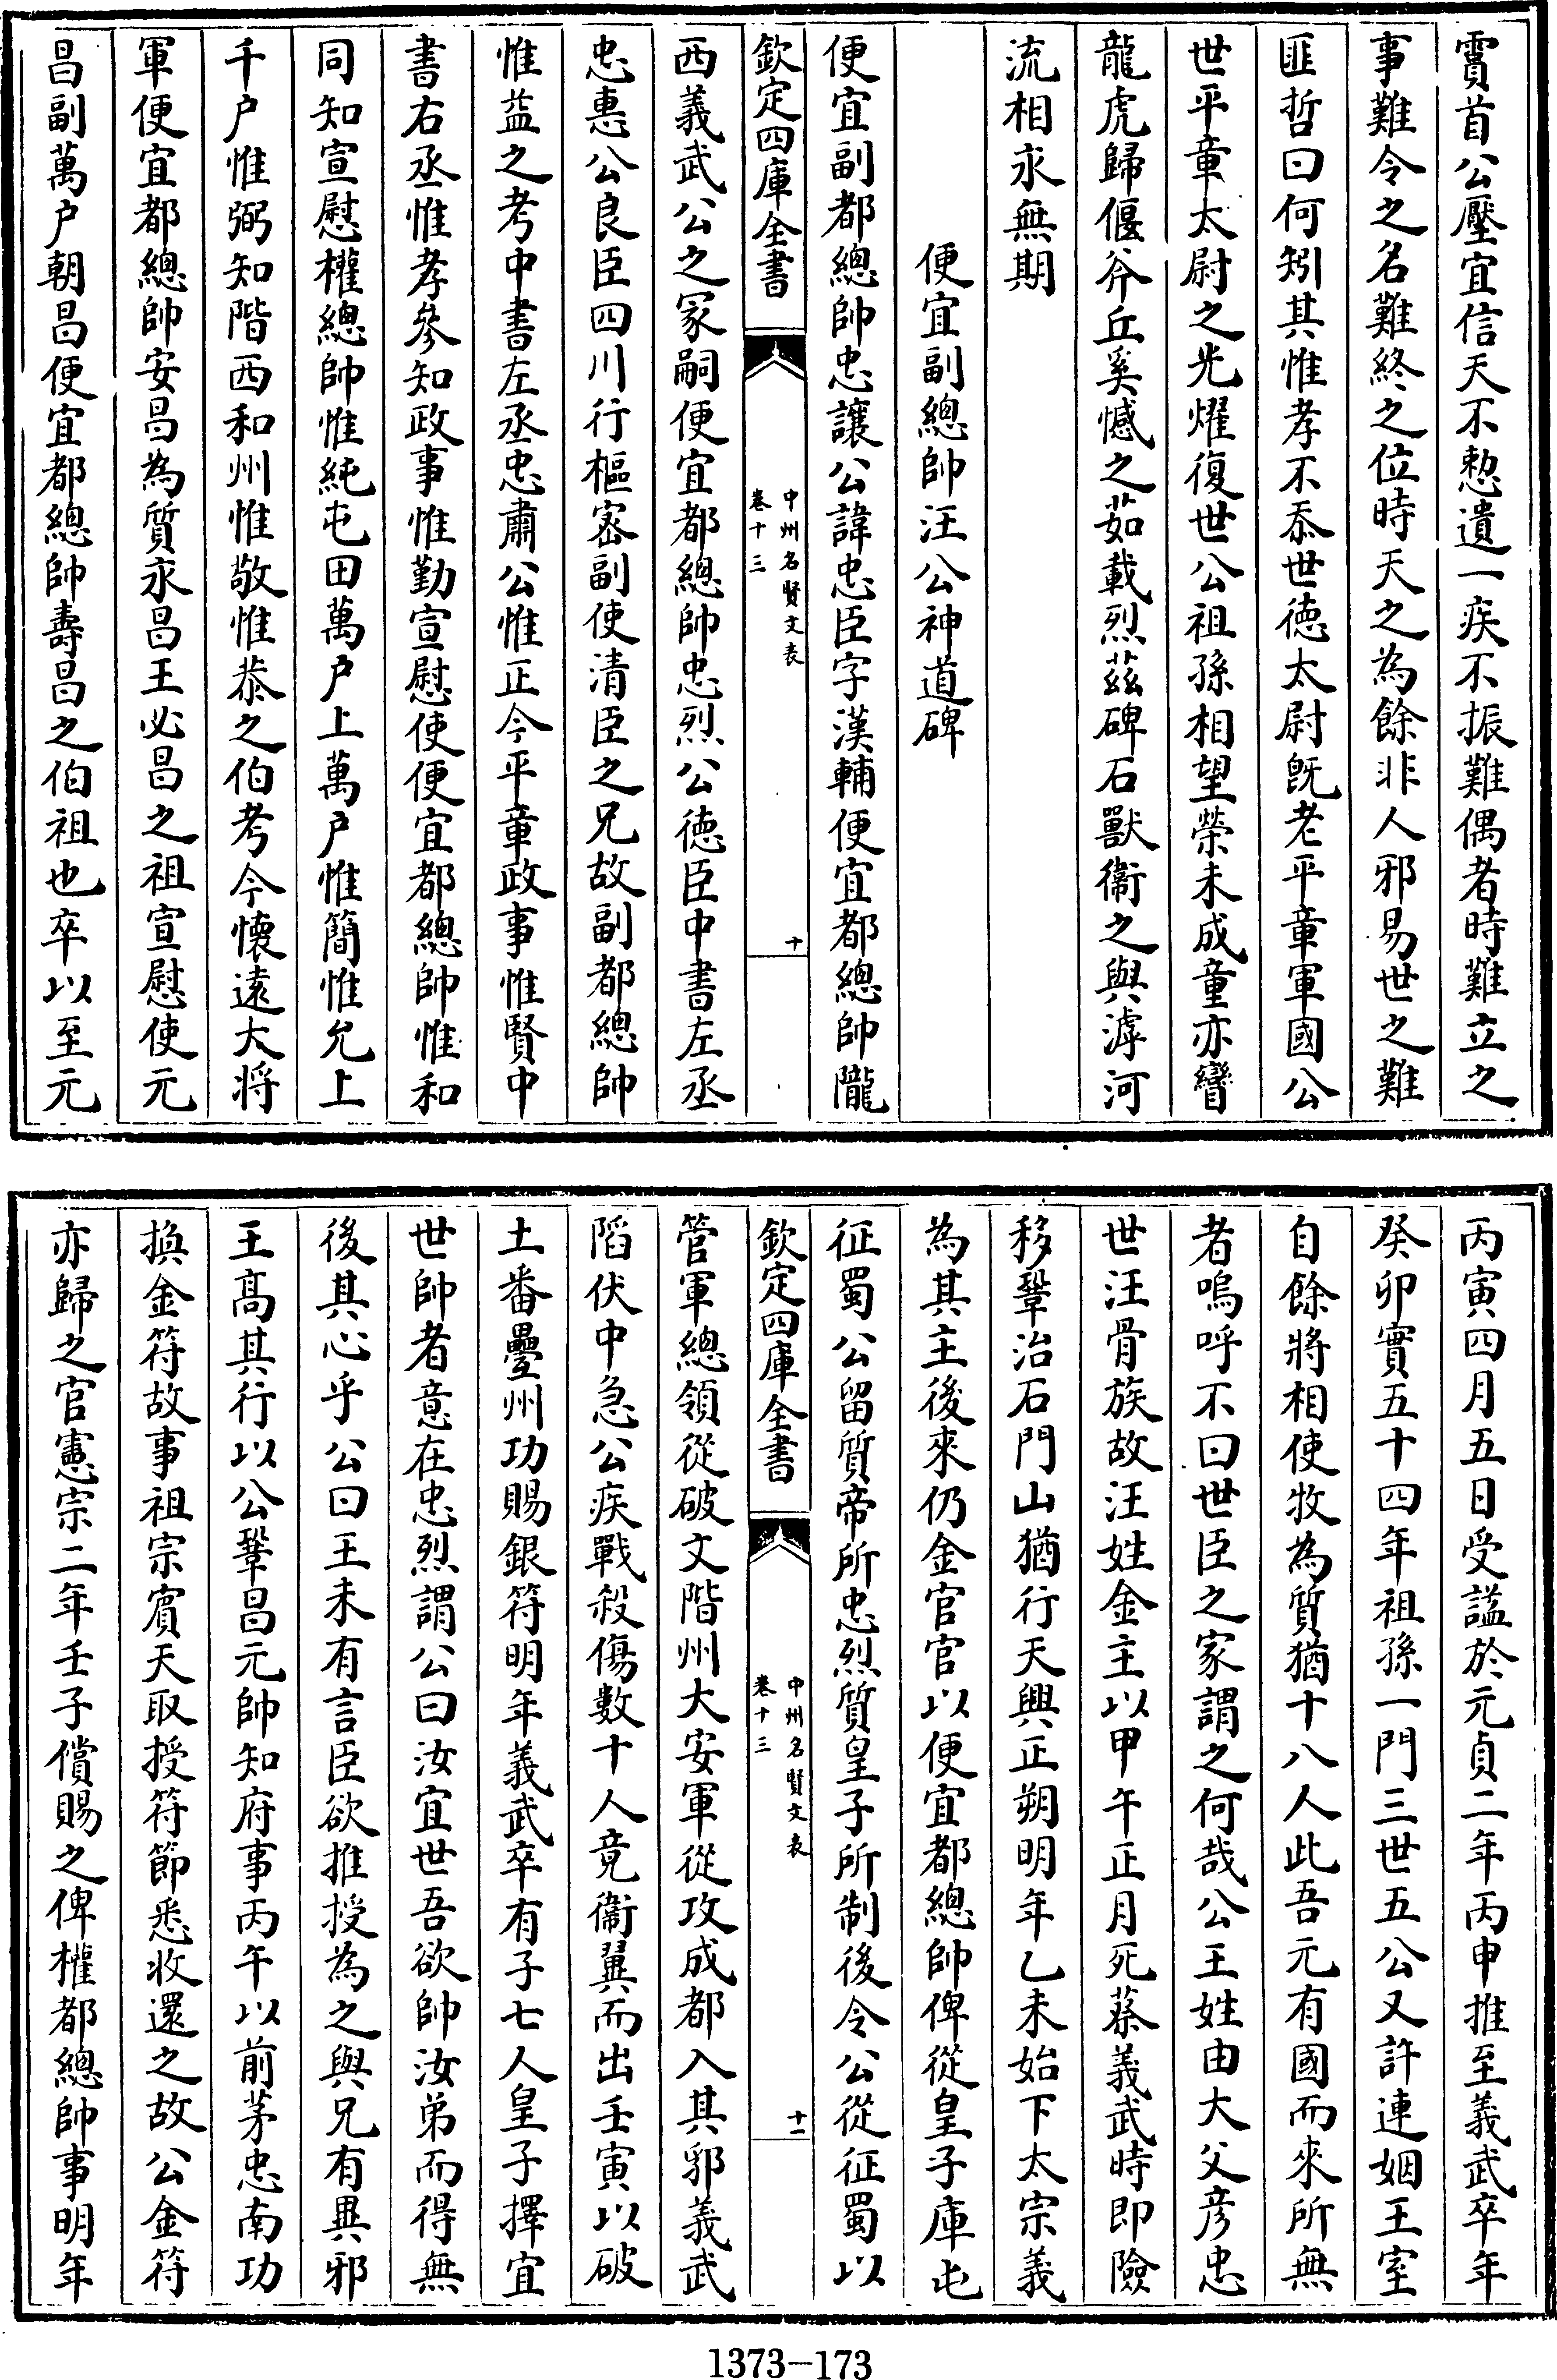 賈首公壓宜信天不憗遺一疾不振難偶者時難立之
事難令之名難終之位時天之為餘非人邪易世之難
匪哲曰何矧其惟孝不忝世徳太尉既老平章軍國公
世平章太尉之光燿復世公祖孫相望榮未成童亦寳
龍虎歸偃斧丘奚憾之茹載烈茲碑石獸衞之與滹河
流相永無期
便宜副總帥汪公神道碑
便宜副都總帥忠讓公諱忠臣字漢輔便宜都總帥隴
欽定四庫全書
中州名賢文表
卷十三
十
西義武公之冢嗣便宜都總帥忠烈公徳臣中書左丞
忠惠公良臣四川行樞宻副使清臣之兄故副都總帥
惟益之考中書左丞忠肅公惟正今平章政事惟賢中
書右丞惟孝參知政事惟勤宣慰使便宜都總帥惟和
同知宣慰權總帥惟純屯田萬户上萬户惟簡惟允上
千户惟弼知階西和州惟敬惟恭之伯考今懐逺大将
軍便宜都總帥安昌為質永昌王必昌之祖宣慰使元
昌副萬户朝昌便宜都總帥壽昌之伯祖也卒以至元
丙寅四月五日受諡於元貞二年丙申推至義武卒年
癸卯實五十四年祖孫一門三世五公又許連姻王室
自餘將相使牧為質猶十八人此吾元有國而來所無
者嗚呼不曰世臣之家謂之何哉公王姓由大父彦忠
世汪骨族故汪姓金主以甲午正月死蔡義武時即險
移鞏治石門山猶行天興正朔明年乙未始下太宗義
為其主後來仍金官官以便宜都總帥俾從皇子庫屯
征蜀公留質帝所忠烈質皇子所制後令公從征蜀以
欽定四庫全書
中州名賢文表
卷十三
十一
管軍總領從破文階州大安軍從攻成都入其郛義武
䧟伏中急公疾戰殺傷數十人竟衞翼而出壬寅以破
土番疊州功賜銀符明年義武卒有子七人皇子擇宜
世帥者意在忠烈謂公曰汝宜世吾欲帥汝弟而得無
後其心乎公曰王未有言臣欲推授為之與兄有異邪
王髙其行以公鞏昌元帥知府事丙午以前茅忠南功
換金符故事祖宗賓天取授符節悉收還之故公金符
亦歸之官憲宗二年壬子償賜之俾權都總帥事明年
1373—173